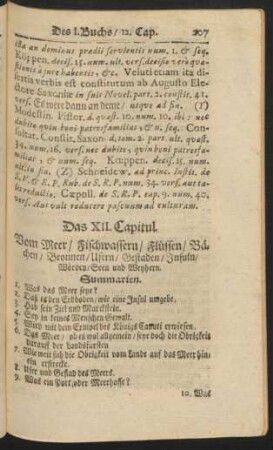 Des I. Buchs / 12. Cap. 207
ista an dominus prædii servientis num. 1. & seq.
Köppen. decis. 15. num. ult. vers. decisio verò quæ-
stionis à jure habentis, &c. Velut etiam ita di-
sertis verbis est constitutum ab Augusto Ele-
ctore Saxoniæ in suis Novel. part. 2. constit. 41.
vers. Es were dann an demt / usque ad fin. (Y)
Modestin. Pistor. d. quæst. 10. num. 10. ibi: nec
dubito quin boni patresfamilias & n. seq. Con-
sultat. Constit. Saxon. d. tom. 2. part. ult. quæst.
34. num. 16. vers. nec dubito, quin boni patresfa-
milias, & num. seq. Kœppen. decis. 15. num.
in fin. (Z) Schneidew. ad princ. Instit. de
S. P. & R. P. Rub. de S. R. P. num. 34. vers. aut ta-
bo redactis. Cæpoll. de S. R. P. cap. 9. num. 40.
vers. Aut vult reducere pascuum ad culturam.
Das XII. Capitul.
Vom Meer / Fischwassern / Flüssen / Bä-
chen / Bronnen / Ufern / Gestaden / Insuln /
Wörden / Seen und Weyhern.
Summarien.
1. Was das Meer seye?
2. Daß es den Erdboden / wie eine Insul umgebe.
3. Hab sein Ziel und Marckstein.
4. Sey in keines Menschen Gewalt.
5. Wird mit dem Exempel des Königs Canuti erwiesen.
6. Das Meer / ob es wol allgemein / seye doch die Obrigkeit
darauff der Landsfürsten
7. Wie weit sich die Obrigkeit vom Landt auf das Meer hin-
ein erstrecke.
8. Ufer und Gestad des Meers.
9. Was ein Port / oder Meerhaffe?
10. Was